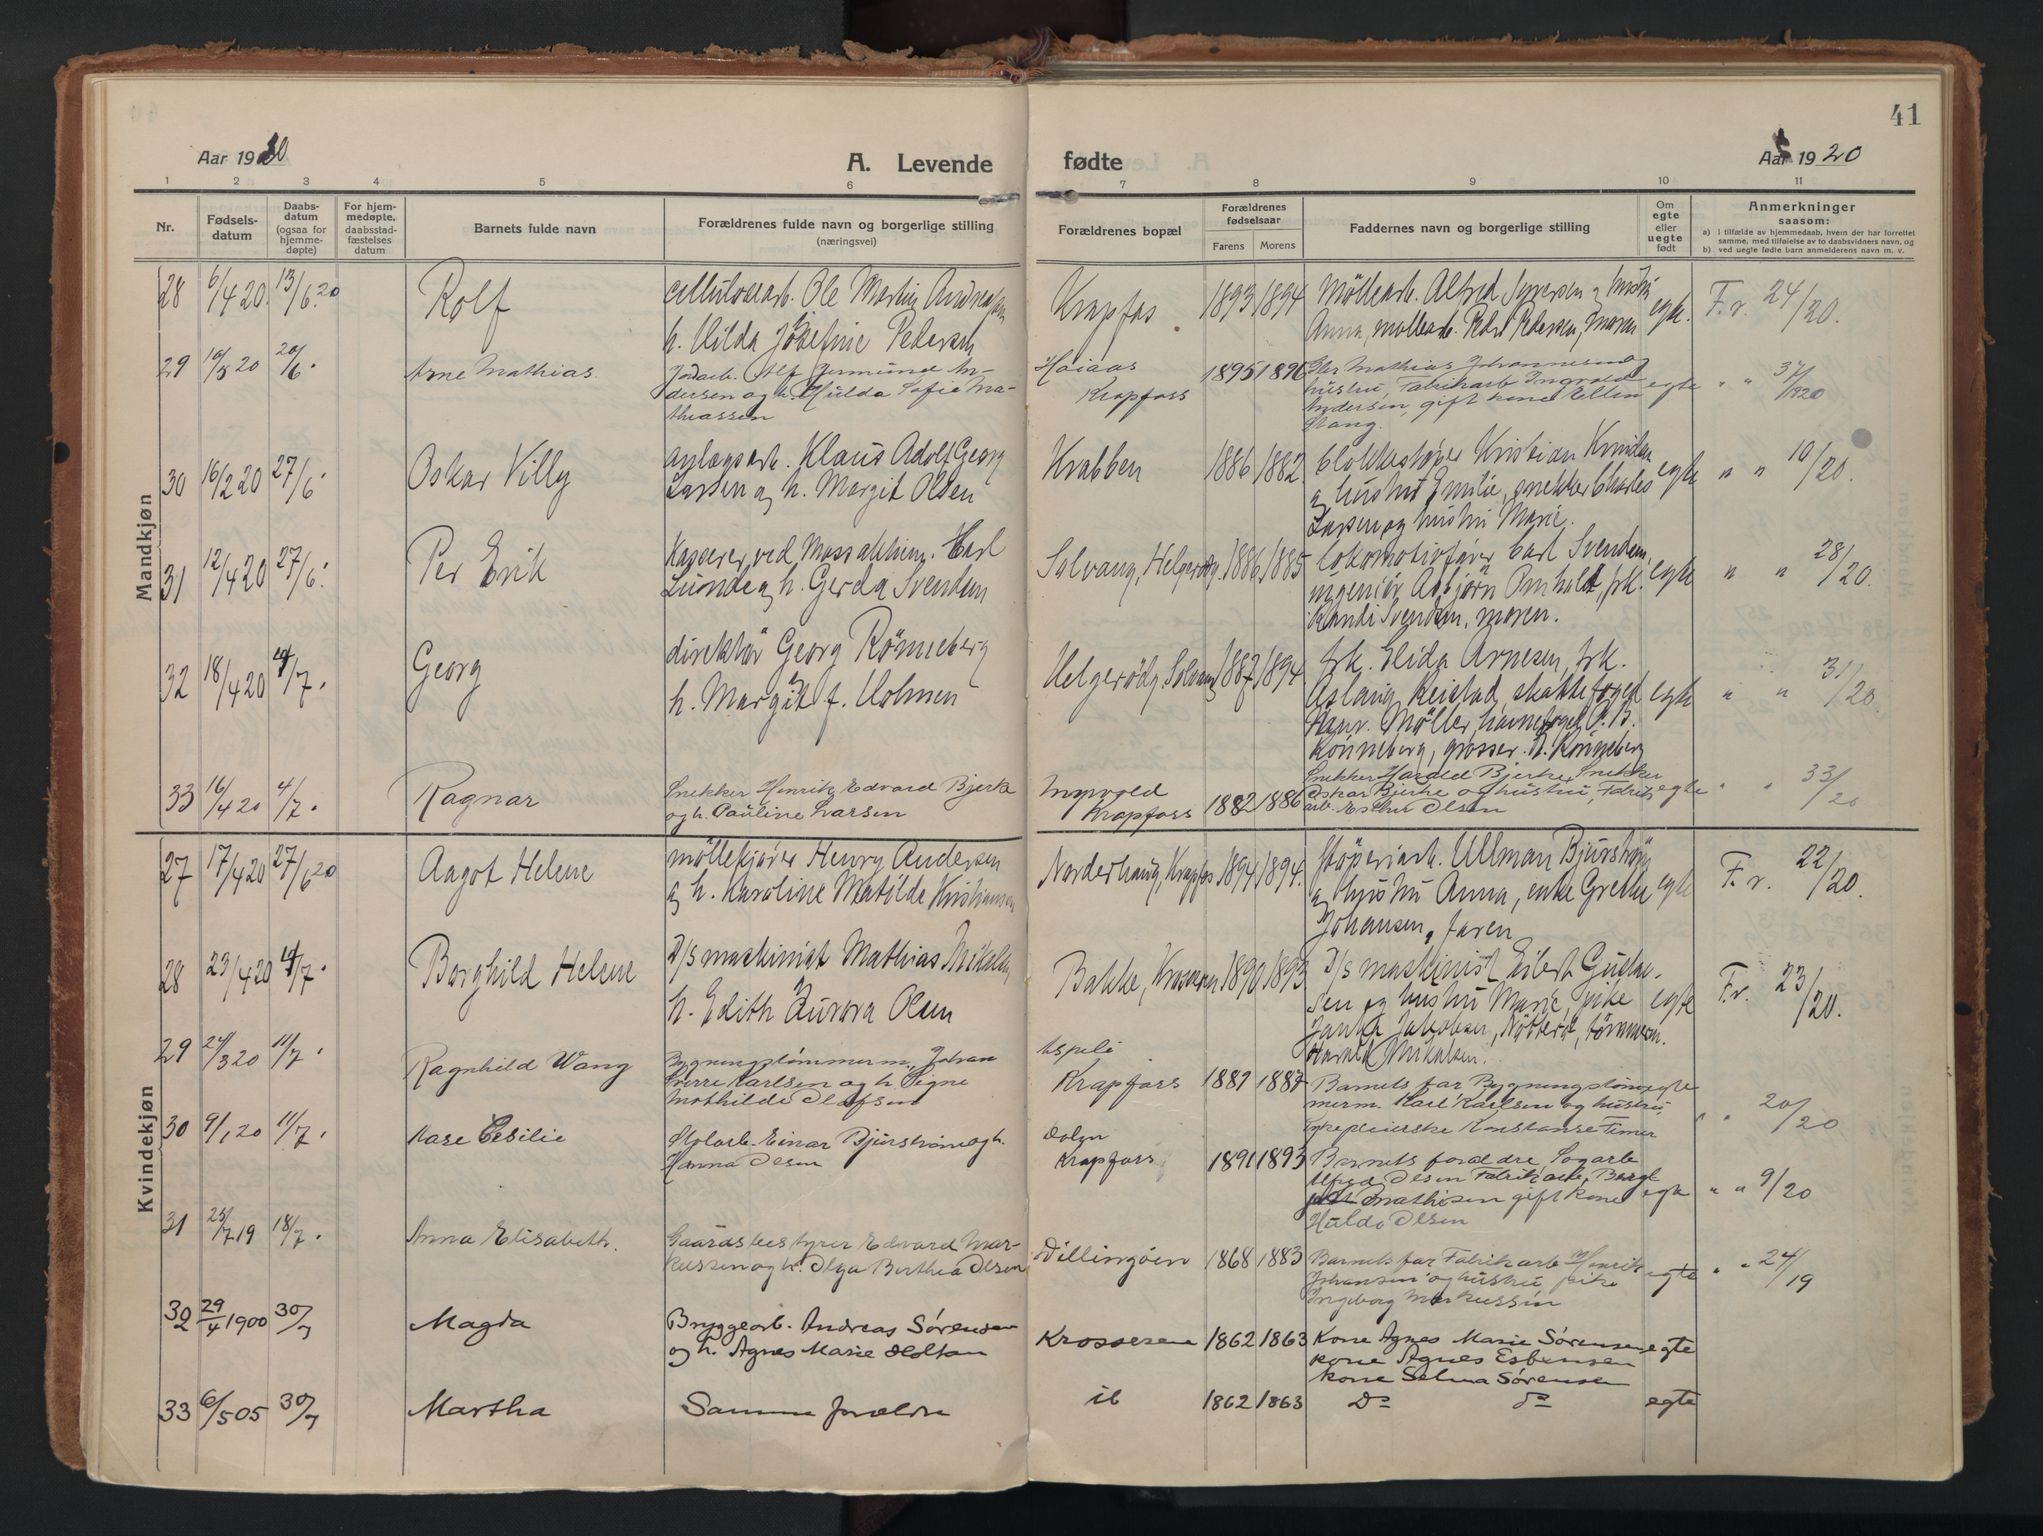 41
Aar 1920
A. Levende fødte
Aar 1920
1 2 3 4 5 6 7 8 9 10 11
Nr.
Fødsels-
datum
Daabs-
datum
(ogsaa for
hjemme-
døpte)
For hjem-
medøpte,
daabsstad-
fæstelses
datum
Barnets fulde navn
Forældrenes fulde navn og borgerlige stilling
(næringsvei)
Forældrenes bopæl
Forældrenes
fødselsaar
Farens Morens
Faddernes navn og borgerlige stilling
Om
egte
eller
uegte
født
Anmerkninger
saasom:
a) i tilfælde av hjemmedaab, hvem der har forrettet
samme, med tilføielse av to daabsvidners navn, og
b) ved uegte fødte barn anmelderens navn m. v.
Mandkjøn
28 6/4 20. 13/6 20 Rolf
cellulosearb. Ole Martin
h. Hilda Josefine Pedersen
Krapfos 1893 1894
Møllearb. Alfred Syversen
Anna, møllearb. Pedersen, moren
egte. F. r. 24/20.
29 10/5 20 20/6. Arne Mathias.
Jordarb. Alf Jermund An-
dersen og h. Hulda Sofie Ma-
thiassen
Høiaas
Krapfoss 1895 1896
Mathias Johannesen og
hustru, Fabrikarb Ingvald
Andersen, gift kone Ellen
Stang.
egte " " 37/1920
30 16/2 20 27/6. Oskar Villy
anlægsarb. Klaus Adolf Georg
Larsen og h. Margit Olsen
Krabben 1886 1882.
Kristian
og hustru Emilie, snekker Charles
Larsen og hustru Marie.
egte " " 10/20.
31 12/4 20 27/6. Per Erik
Kasserer ved Carl
Lunde og h. Gerda Svendsen
Solvang, Helgerød 1886 1885
lokomotivfører Carl Svendsen,
ingeniør Asbjørn Omholt, frk.
Randi Svendsen, moren.
egte " " 28/20.
32 18/4 20 4/7. Georg
direktør Georg Rønneberg
h. Margit f. Holmen
Helgerød, Solvang 1887 1894
frk. Elida Arnesen, frk.
Aslaug Reistad, skattefoged
Møller, havnefoged
Rønneberg, grosser. Rønneberg
egte " " 31/20.
33 16/4 20 4/7. Ragnar
Snekker Henrik Edvard Bjerke
og h. Pauline Larsen
Krapfoss 1882 1886
Snekker Harald Bjerke, Snekker
Oskar Bjerke og hustru, Fabrik
arb. Olsen
egte " " 33/20
Kvindekjøn
27 17/4 20 27/6 20 Aagot Helene
møllekjører Henry Andersen
og h. Karoline Matilde Kristiansen
Norderhaug, Krapfos 1894 1894.
støperiarb. Ullman Bjurstrøm
og hustru Anna, enke Grethe
Johansen, faren
egte F. r. 22/20.
28 23/4 20 4/7. Borghild Helene
D/s maskinist Mathias Mikalsen
h. Edith Aurora Olsen
Bakke, 1890 1893
D/s maskinist Eilert Gustav-
sen og hustru Marie, pike
Jakobsen, tømmerm.
Harald Mikalsen.
egte F.r. 23/20.
29 24/3 20 11/7. Ragnhild Wang
Bygningstømmerm. Johan
Sverre Karlsen og h. Signe
Mathilde Olafsen
Aspeli
Krapfoss 1889 1887
Barnets far Bygningstøm-
merm. Karl Karlsen og hustru,
Sykepleierske Konstanse Timer
egte " " 20/20
30 9/1 20 11/7. Aase Cesilie
Stolarb. Einar Bjurstrøm og h.
Hanna Olsen
Krapfoss 1891 1893
Barnets forældre Sagarb
Alfred Olsen Fabrikarb.
Mathisen gift kone
Hulda Olsen
egte " " 9/20
31 25/7 19 18/7. Anna Elisabeth.
Gaardsbestyrer Edvard Mar-
kussen og h. Olga Berthea Olsen
Dillingøen 1868 1883
Barnets far Fabrikarb Henrik
Johansen og hustru, pike
Ingeborg Markussen
egte " " 24/19
32 29/4 1900 30/7 Magda
Bryggearb. Andreas Sørensen
og h. Agnes Marie Holtan
Krosseren 1862 1863
Kone Agnes Marie Sørensen
kone Agnes Esbensen
kone Selma Sørensen
egte
33 6/5 05 30/7 Martha
Samme forældre
ib 1862 1863 Do do egte